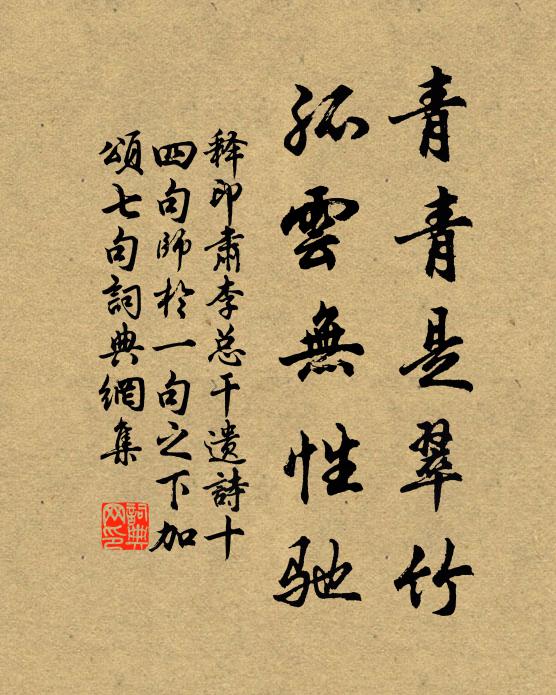 青青是翠竹
孤雲無性馳
释印肃李总干遗詩十
四句師於一句之下加
頌七句詞典網集
詞典網印